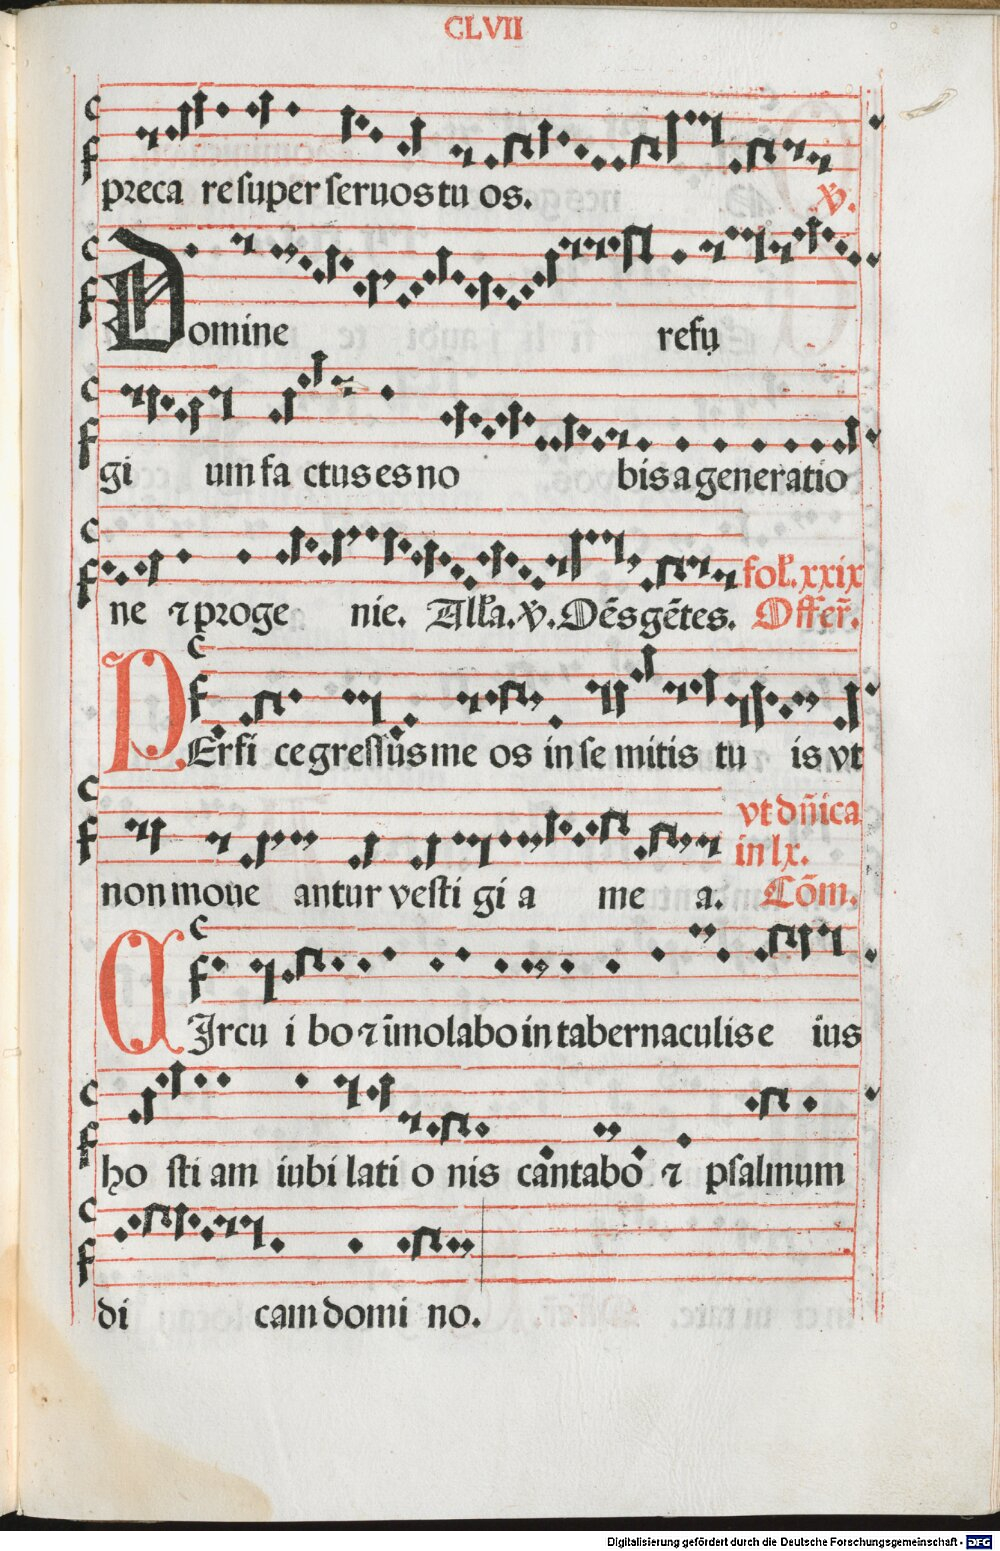 CLVII
preca re super seruos tu os. ℣.
Domine refu
gi um fa ctus es no bis a generatio
ne ⁊ proge nie. All'a. ℣. Dēs gētes. fol. xxix Offer̄.
PErfi ce gressus me os in se mitis tu is vt
non moue antur vesti gi a me a. vt dn̄ica in lx. Cōm.
CIrcu i bo ⁊ īmolabo in tabernaculis e ius
ho sti am iubi lati o nis cantabo ⁊ psalmum
di cam domi no.
Digitalisierung gefördert durch die Deutsche Forschungsgemeinschaft - DFG